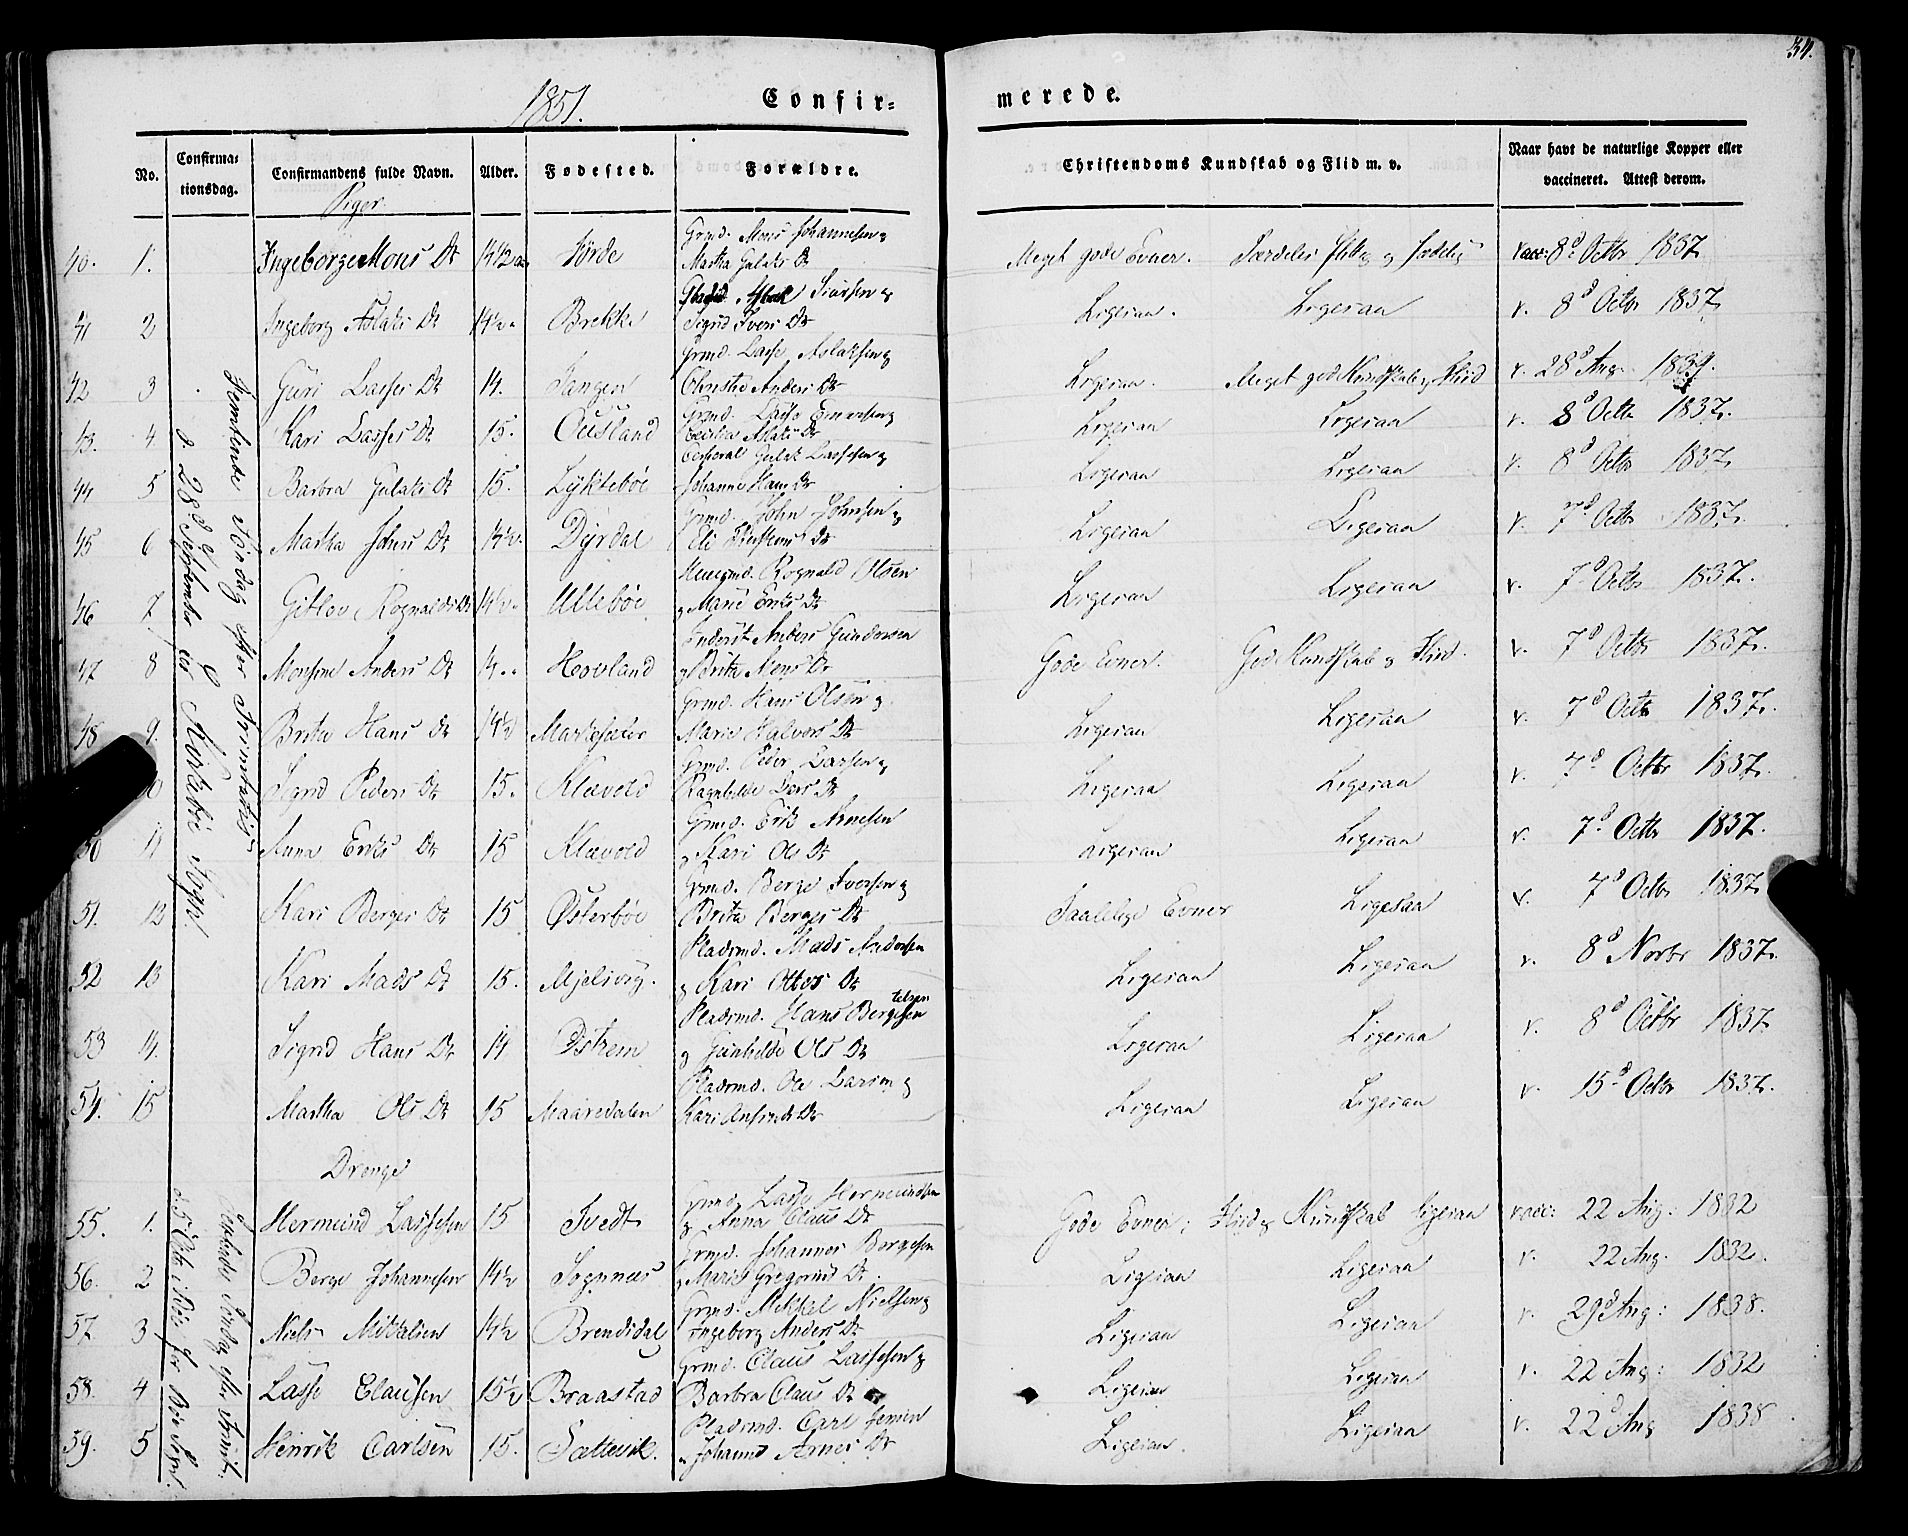 34.
1851.
Confir-
merede.
No.
Confirma-
tionsdag.
Confirmandens fulde Navn.
Alder.
Fødested.
Forældre.
Christendoms Kundskab og Flid m. v.
Naar havt de naturlige Kopper eller
vaccineret. Attest derom.
Piger
Femtende Søndag efter Trinitatis
d. 28d September i Kirkebøe Sogn.
Grmd. Mons Johannesen og
40. 1. Ingeborg Mons Dr 14½ Førde Martha Gulaks Dr Meget gode Evner. Særdeles flittig og sædelig vacc: 8d Octbr 1837
Aslak Siursen og
41 2 Ingeborg Aslaks Dr 14½ Brekke Sigrid Ivers Dr Ligesaa. Ligesaa v. 8d Octbr 1837
Grmd. Lasse Aslaksen og
42 3 Guri Lasses Dr 14. Tangen Christie Anders Dr Ligesaa. Meget god Kundskab og Fliid v. 28d Aug. 1839.
Grmd. Lasse
43. 4. Kari Lasses Dr 15. Ousland Cecilia Aslaks Dr Ligesaa Ligesaa v. 8d Octbr 1837.
Corporal Gulak Lassesen og
44 5 Barbra Gulaks Dr 15. Lyktebøe Johanne Hans Dr Ligesaa Ligesaa v. 8d Octbr 1837.
Grmd. John Johnsen og
45 6 Martha Johns Dr 14½. Dyrdal Eli Dr Ligesaa Ligesaa v. 7d Octbr 1837.
Huusmd. Rognald Olsen
46 7 Gitlov Rognalds Dr 14½. Ullebøe og Marie Eriks Dr Ligesaa Ligesaa v. 7d Octbr 1837.
Inderst Anders Gundersen
47 8 Monsine Anders Dr 14.. Hovland og Brita Mons Dr Gode Evner. God Kundskab og Fliid. v. 7d Octbr 1837.
Grmd. Hans Olsen og
48 9. Brita Hans Dr 14½ Marie Halvors Dr Ligesaa Ligesaa v. 7d Octbr 1837.
Grmd. Peder Larsen og
10 Sigrid Peders Dr 15. Klævold Ragnhilde Lars Dr Ligesaa Ligesaa v. 7d Octbr 1837.
Grmd. Erik Arnesen
50 11 Anna Eriks Dr 15 Klævold og Kari Ols Dr Ligesaa Ligesaa v. 7d Octbr 1837.
Grmd. Berge Iversen og
51. 12 Kari Berges Dr 15 Østerbøe Brita Berges Dr Saallige Evner Ligesaa v. 7d Octbr 1837
Pladsmd. Mads Andersen
52 13 Kari Mads Dr 15. Mjelsvig. og Kari Otters Dr Ligesaa Ligesaa v. 8d Novbr 1837.
Pladsmd. Hans
53 14. Sigrid Hans Dr 14 Østrem og Gunhilde Ols Dr Ligesaa Ligesaa v. 8d Octbr 1837
Pladsmd. Ole Larsen og
54. 15 Martha Ols Dr 15 Maaredalen Kari Ansinds Dr Ligesaa Ligesaa v. 15d Octbr 1837.
Drenge
Søndag efter Trinit.
d. 5 Octbr i Bøe for Bøe Sogn.
Grmd. Lasse Hermundsen
55. 1. Hermund Lassesen 15 Tvedt og Anna Claus Dr Gode Evner; Fliid og Kundskab ligesaa vacc: 22 Aug: 1832
Grmd. Johannes Bergesen
56. 2 Berge Johannesen 14½ Sognnæs og Marie Gregorius Dr Ligesaa Ligesaa v. 22 Aug: 1832.
Grmd. Mikkel Nielsen og
57 3 Niels Mikkelsen 14½ Brendsdal Ingeborg Anders Dr Ligesaa Ligesaa v. 29d Aug: 1838.
Grmd. Claus Lassesen og
58. 4 Lasse Clausen 15½ Braastad Barbra Claus Dr Ligesaa Ligesaa v. 22 Aug: 1832
Pladsmd. Carl Jensen
59. 5 Henrik Carlsen 15. Sættevik. og Johanne Arnes Dr Ligesaa. Ligesaa v. 22d Aug 1838.